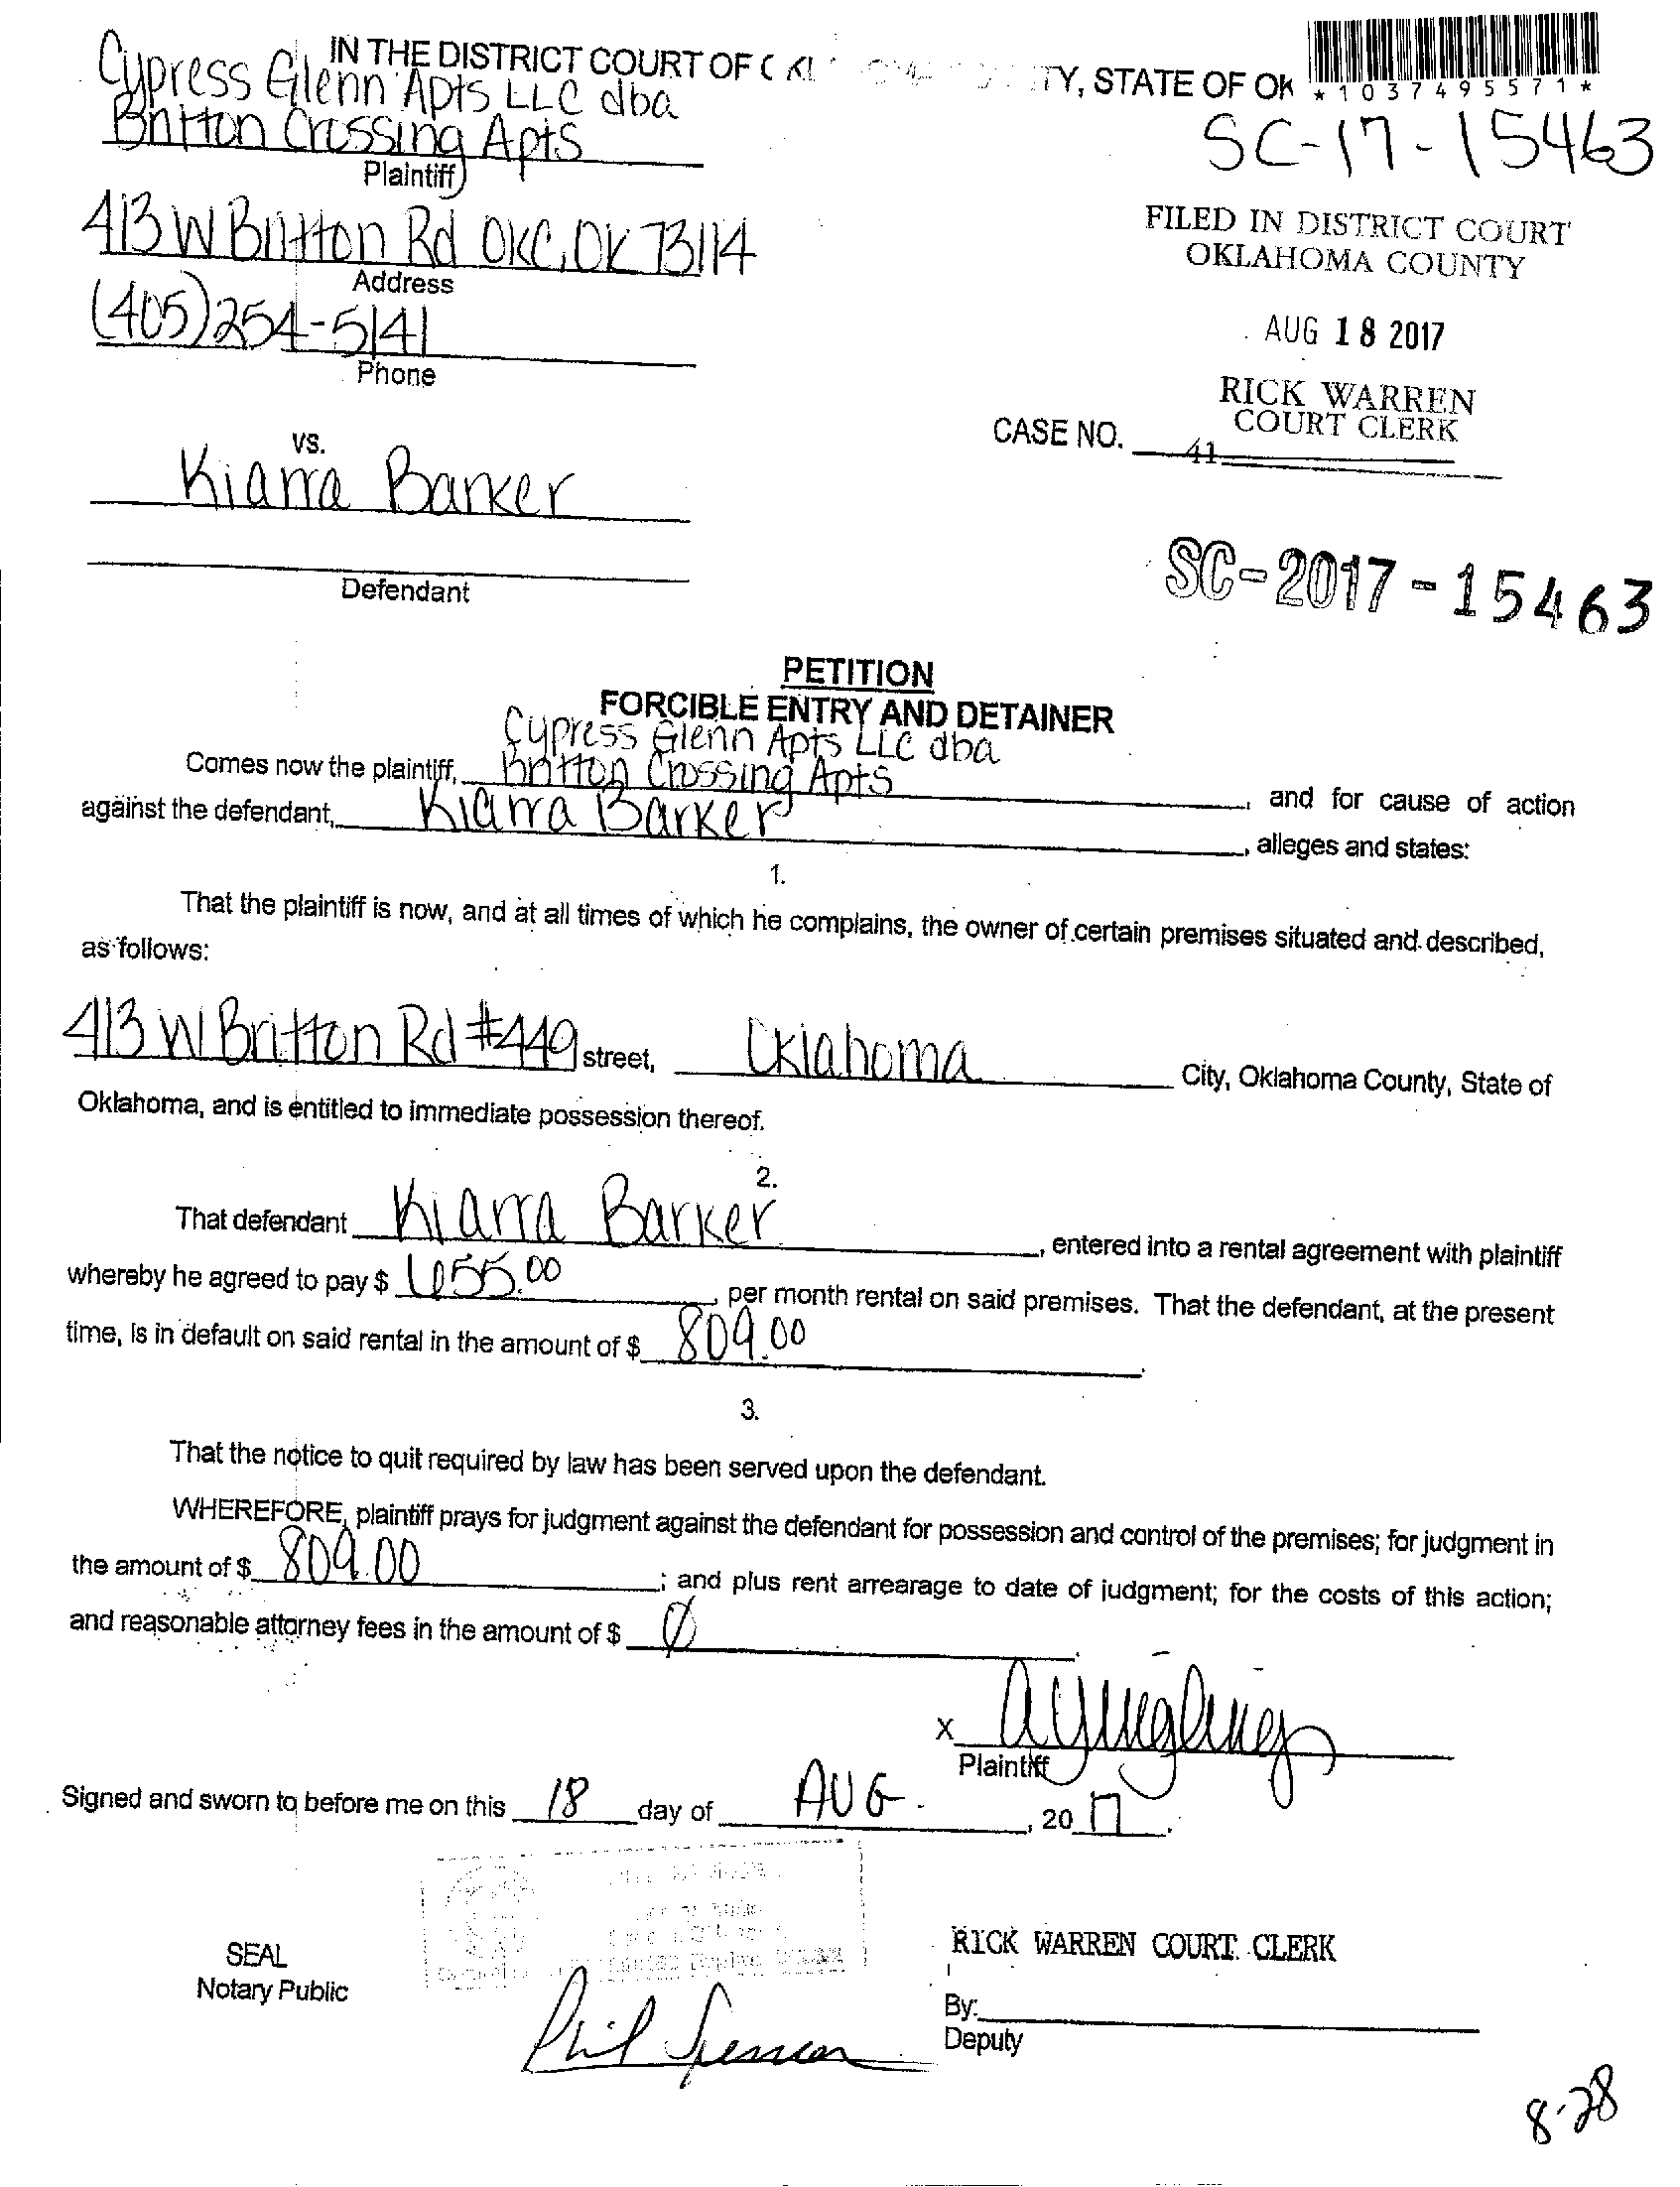 IN THE DISTRICT COURT OF TY, STATE OF OK
*1037495571*
Cypress Glenn Apts LLC dba
Britton Crossing Apts
Plaintiff
SC-17-15463
413 W Britton Rd OKC, OK 73114
Address
FILED IN DISTRICT COURT
OKLAHOMA COUNTY
(405) 254-5141
Phone
AUG 18 2017
RICK WARREN
COURT CLERK
CASE NO.
41
vs.
Kiarra Barker
Defendant
SC-2017-15463
PETITION
FORCIBLE ENTRY AND DETAINER
Cypress Glenn Apts LLC dba
Comes now the plaintiff, Britton Crossing Apts, and for cause of action
against the defendant, Kiarra Barker, alleges and states:
1.
That the plaintiff is now, and at all times of which he complains, the owner of certain premises situated and described,
as follows:
413 W Britton Rd #449 street, Oklahoma City, Oklahoma County, State of
Oklahoma, and is entitled to immediate possession thereof.
2.
That defendant Kiarra Barker, entered into a rental agreement with plaintiff
whereby he agreed to pay $ 655.00, per month rental on said premises. That the defendant, at the present
time, is in default on said rental in the amount of $ 809.00.
3.
That the notice to quit required by law has been served upon the defendant.
WHEREFORE, plaintiff prays for judgment against the defendant for possession and control of the premises; for judgment in
the amount of $ 809.00; and plus rent arrearage to date of judgment; for the costs of this action;
and reasonable attorney fees in the amount of $ Ø.
X ayingling
Plaintiff
Signed and sworn to before me on this 18 day of AUG., 20 17.
SEAL
Notary Public
Phil Spencer
RICK WARREN COURT CLERK
By:
Deputy
8-28